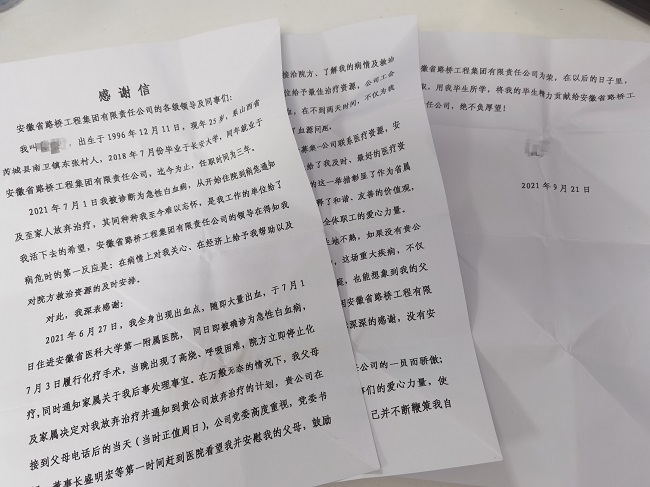 感谢信
安徽省路桥工程集团有限责任公司的各级领导及同事们:
我叫，出生于1996年12月11日，现年25岁，系山西省
芮城县南卫镇东张村人，2018年7月份毕业于长安大学，同年就业于
安徽省路桥工程集团有限责任公司，迄今为止，任职时间为三年。
2021年7月1日我被诊断为急性白血病，从开始住院到病危通知
及至家人放弃治疗，其间种种我至今难以忘怀，是我工作的单位给了
我活下去的希望，安徽省路桥工程集团有限责任公司的领导在得知我
病危时的第一反应是：在病情上对我关心、在经济上给予我帮助以及
对院方救治资源的及时安排。
对此，我深表感谢：
2021年6月27日，我全身出现出血点，随即大量出血，于7月1
日住进安徽省医科大学第一附属医院，同日即被确诊为急性白血病，
7月3日履行化疗手术，当晚出现了高烧、呼吸困难，院方立即停止化
疗，同时通知家属关于我后事处理事宜。在万般无奈的情况下，我父母
及家属决定对我放弃治疗并通知到贵公司放弃治疗的计划，贵公司在
接到父母电话后的当天（当时正值周日），公司党委高度重视，党委书
董事长盛明宏等第一时间赶到医院看望我并安慰我的父母，鼓励
接洽院方、了解我的病情及救治
位给予最佳治疗资源，公司工会
，在不到两天时间，不仅为我
了血源问题。
募集公司联系医疗资源，安
给了我及时、最好的医疗资
的这一举措彰显了作为省属
释了和谐、友善的价值观，
全体职工的爱心力量。
生地不熟，如果没有贵公
，这场重大疾病，不仅
庭，也能想象到我的父
路桥工程有限
深深的感谢，没有安
公司的一员而骄傲；
事们的爱心力量，使
己并不断鞭策我自
徽省路桥工程集团有限责任公司为荣，在以后的日子里，
取，用我毕生所学，将我的毕生精力贡献给安徽省路桥工
任公司，绝不负厚望！
2021年9月21日